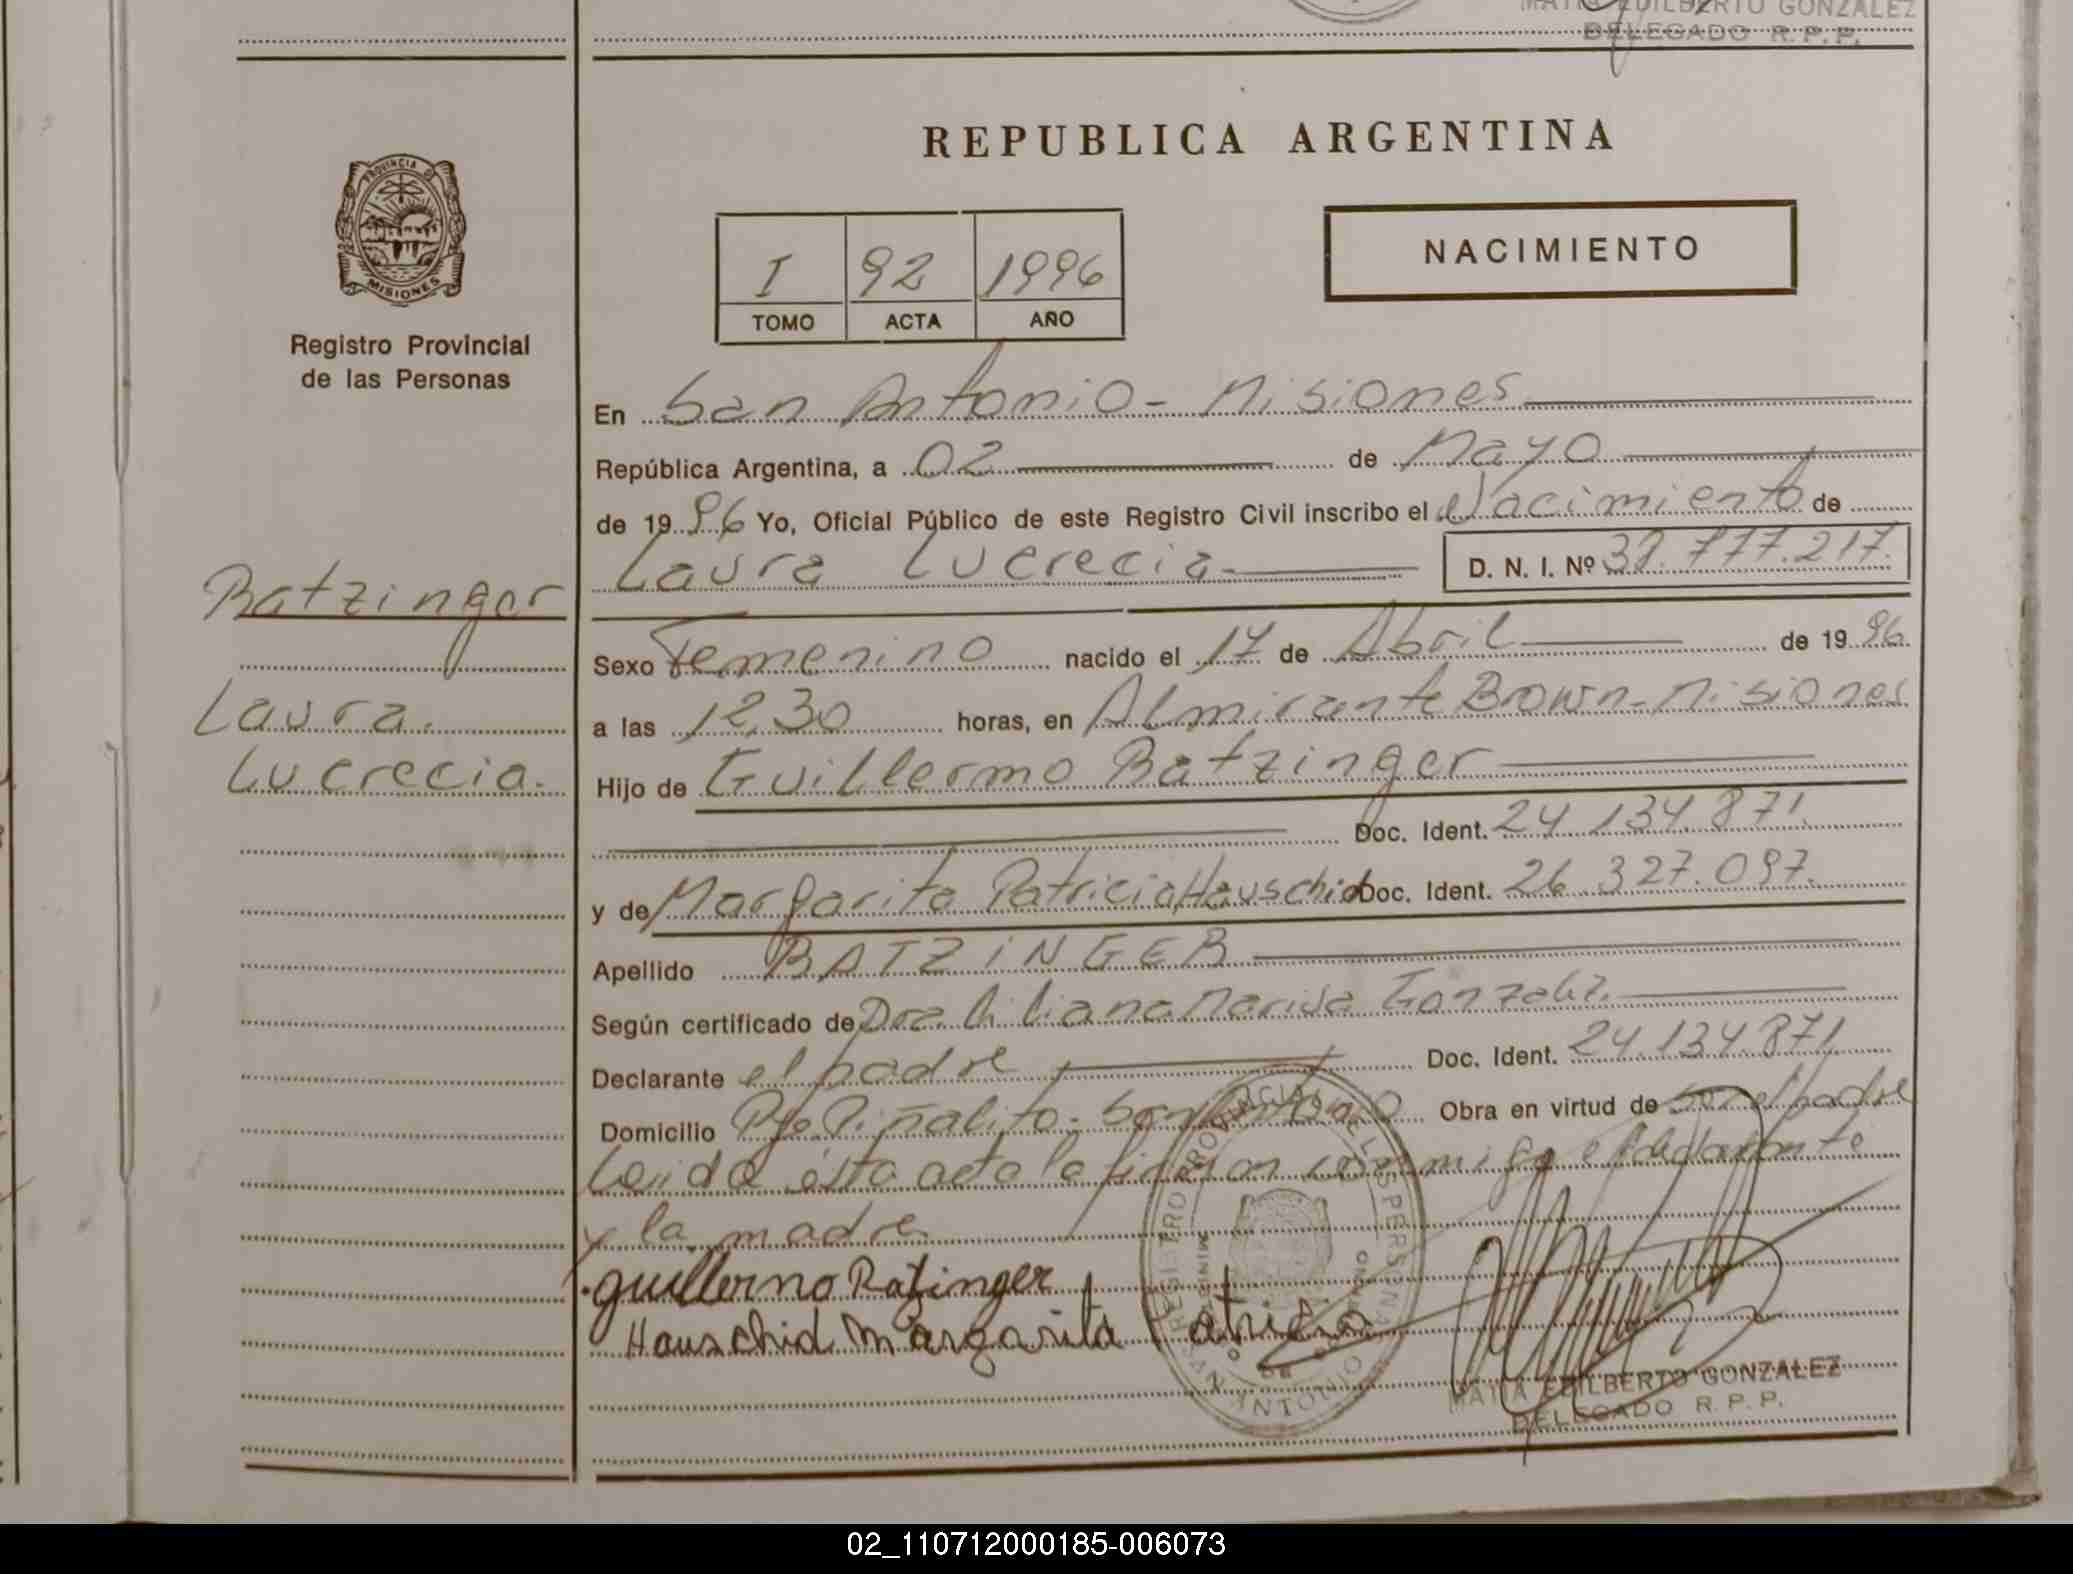 MATIA EDILBERTO GONZALEZ
DELEGADO R. P. P.
REPUBLICA ARGENTINA
PROVINCIA D
MISIONES
Registro Provincial
de las Personas
I 92 1996
TOMO ACTA AÑO
NACIMIENTO
En San Antonio - Misiones
República Argentina, a 02 de Mayo
de 1996 Yo, Oficial Público de este Registro Civil inscribo el Nacimiento de
Laura Lucrecia D. N. I. Nº 39.777.217.
Ratzinger
Laura
Lucrecia.
Sexo Femenino nacido el 17 de Abril de 1996.
a las 12,30 horas, en Almirante Brown - Misiones
Hijo de Guillermo Ratzinger
Doc. Ident. 24.134.871.
y de Margarita Patricia Hauschid Doc. Ident. 26.327.097.
Apellido RATZINGER
Según certificado de Dra. Liliana Marisa Gonzalez.
Declarante el padre Doc. Ident. 24.134.871
Domicilio Pje. Piñalito - San Antonio Obra en virtud de ser el padre
Leida ésta acta la firman conmigo el declarante
y la madre
guillermo Ratzinger
Hauschid Margarita Patricia
REGISTRO PROVINCIAL DE LAS PERSONAS
SAN ANTONIO
MATIA EDILBERTO GONZALEZ
DELEGADO R. P. P.
02_110712000185-006073